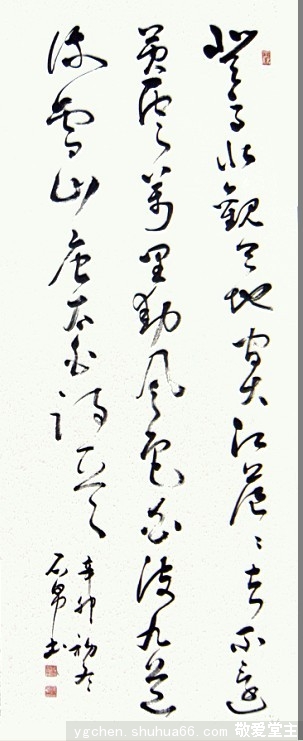 登高壮觀天地间大江茫茫去不還
黄雲萬里動風色白波九道
流雪山唐李白詩
辛卯初冬
石帛书
ygchen.shuhua66.com 敬爱堂主